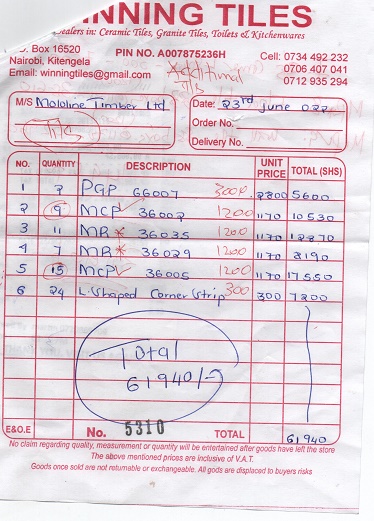 WINNING TILES
Dealers in: Ceramic Tiles, Granite Tiles, Toilets & Kitchenwares
P.O. Box 16520 PIN NO. A007875236H Cell: 0734 492 232
Nairobi, Kitengela 0706 407 041
Email: winningtiles@gmail.com 0712 935 294
Additional
M/S Mololine Timber Ltd Date: 23rd June 022
T/C Order No.
Delivery No.
NO. QUANTITY DESCRIPTION UNIT PRICE TOTAL (SHS)
1 2 PGP 66007 3000 2800 5600
2 9 MCP 36002 1200 1170 10530
3 11 MR* 36035 1200 1170 12870
4 7 MR* 36029 1200 1170 8190
5 15 MCP 36005 1200 1170 17550
6 24 L.Shaped Corner Strip 300 300 7200
Total
61940/=
E&O.E No. 5310 TOTAL 61940
No claim regarding quality, measurement or quantity will be entertained after goods have left the store
The above mentioned prices are inclusive of V.A.T.
Goods once sold are not returnable or exchangeable. All gods are displaced to buyers risks